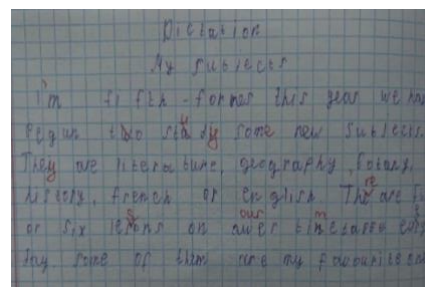 Dictation
My subjects
I'm fifth-former this year we
began two study some new subjects.
They are literature, geography, botany,
history, french or english. The are
or six lesons on timetable
day some of them are my favourite